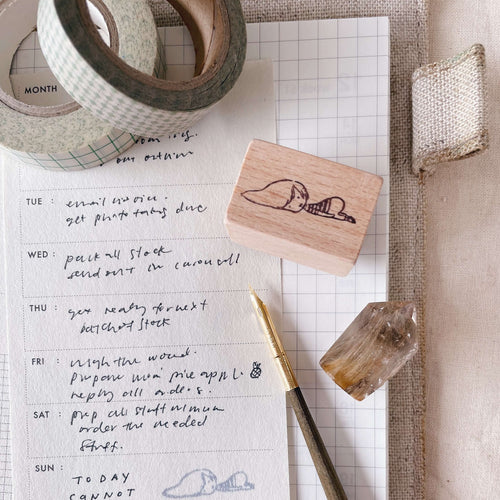 MONTH
TUE :
email invoice.
get photo taking due
WED :
pack all stock
send out in carousell
THU :
get ready for next
batch of stock
FRI :
weigh the wood.
prepare mom' pineapple
reply all orders!
SAT :
prep all stuff
order the needed
stuff.
SUN :
TODAY
CANNOT